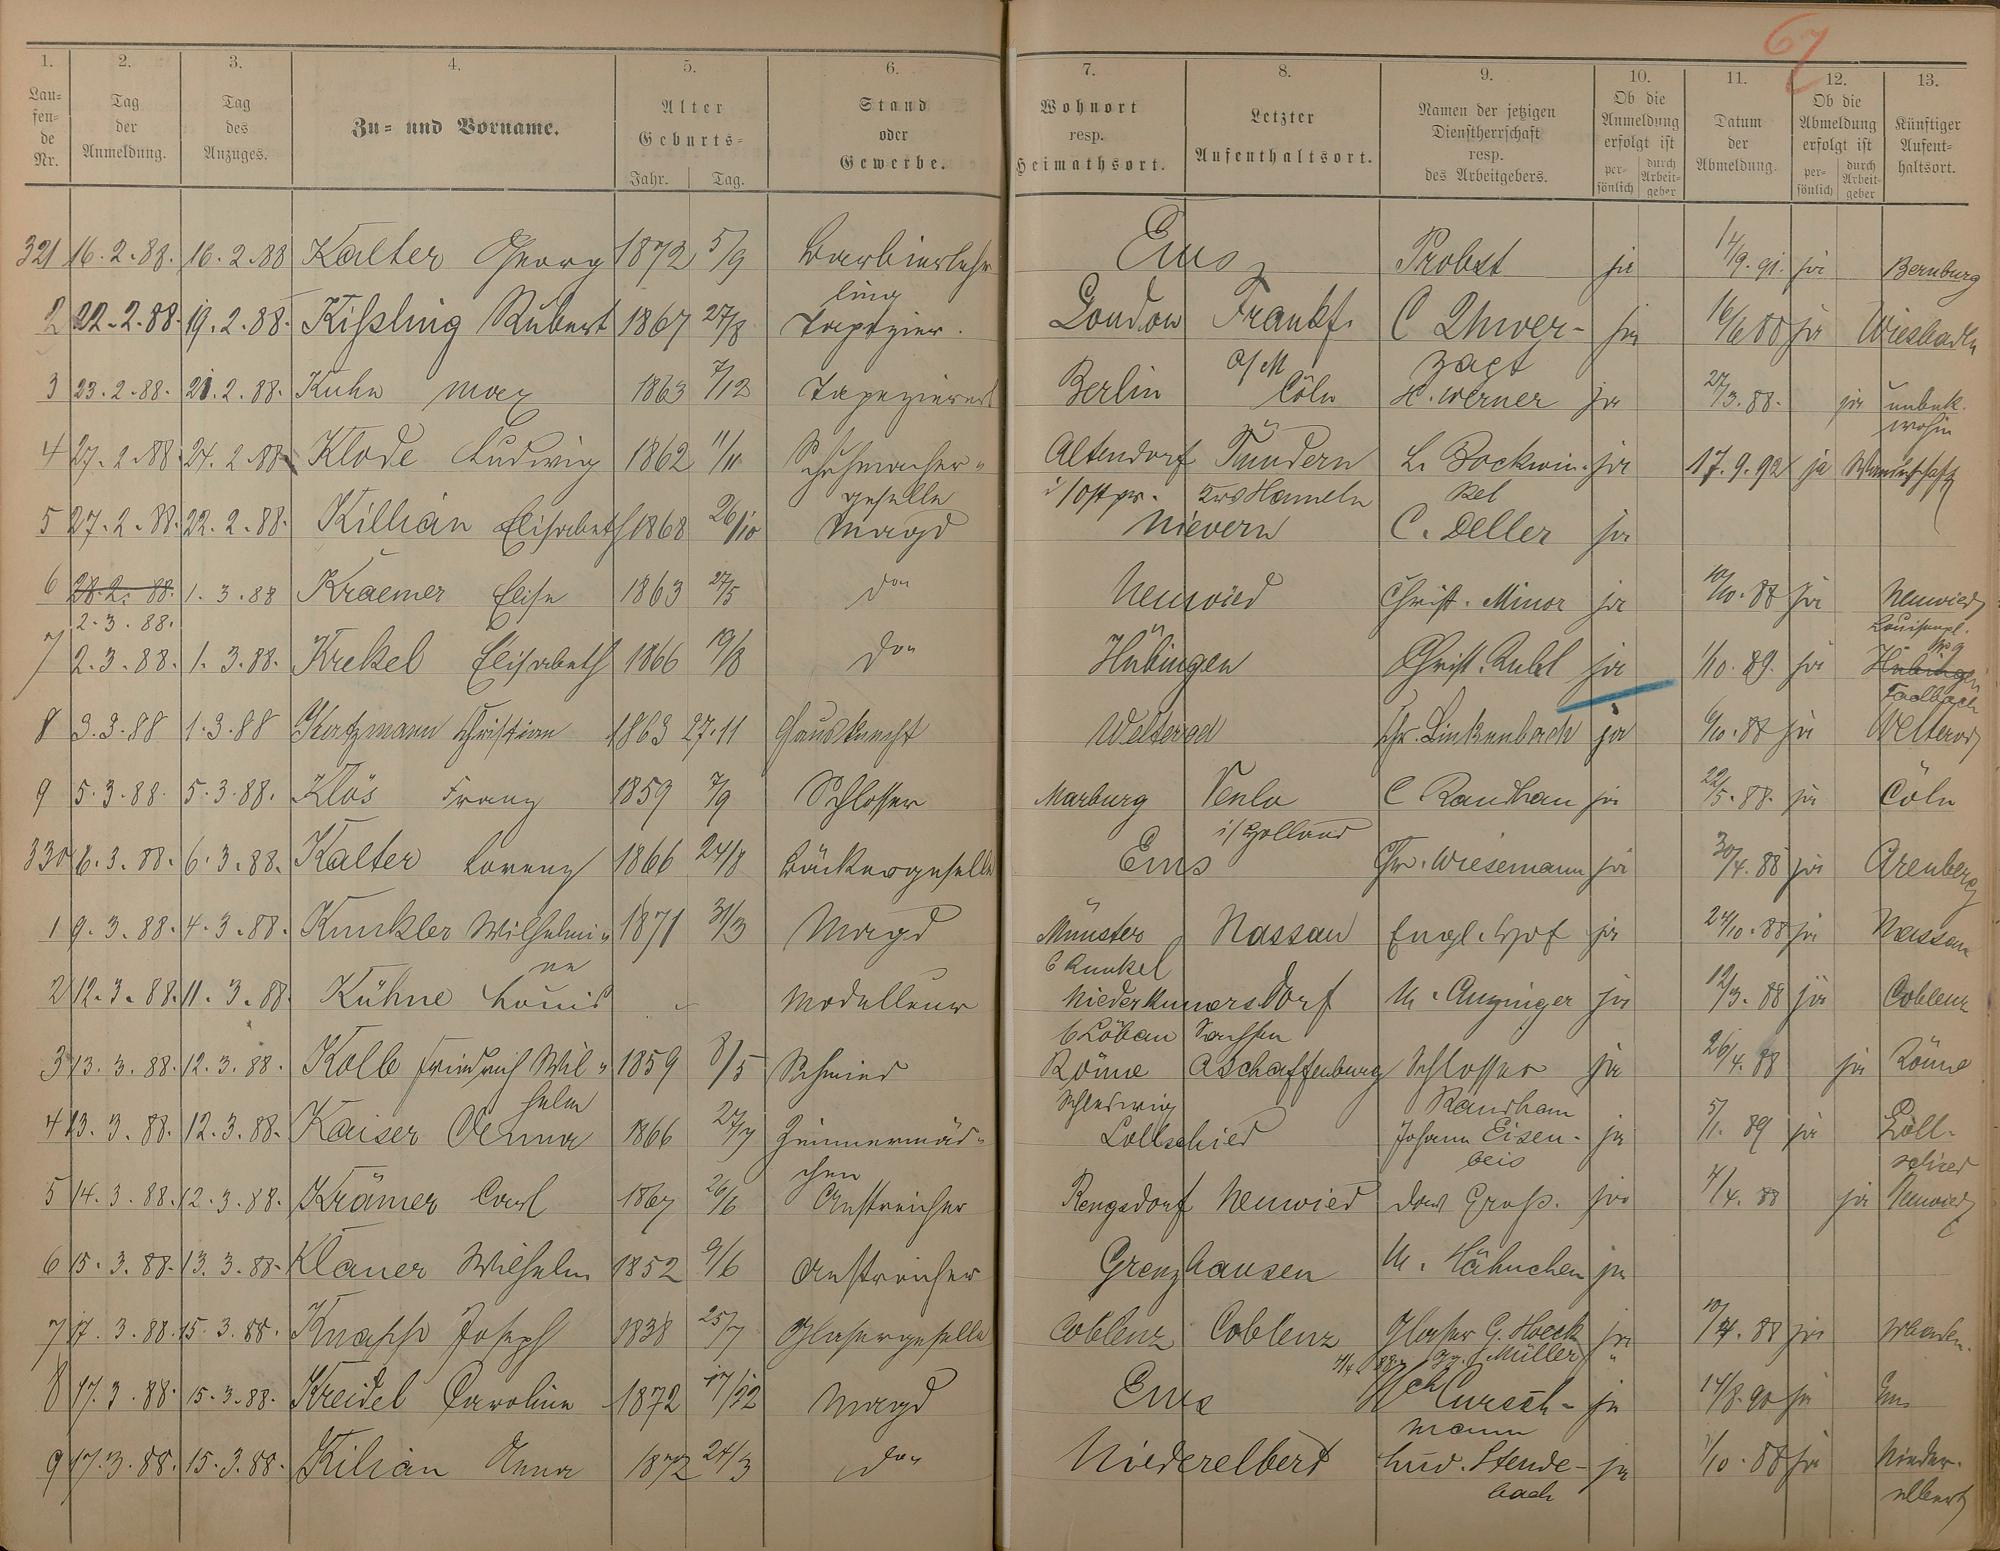 67
1. 2. 3. 4. 5. 6. 7. 8. 9. 10. 11. 12. 13.
Lau=
fen=
de
Nr.
Tag
der
Anmeldung.
Tag
des
Anzuges.
Zu= und Vorname.
Alter
Geburts=
Jahr. Tag.
Stand
oder
Gewerbe.
Wohnort
resp.
Heimathsort.
Letzter
Aufenthaltsort.
Namen der jetzigen
Dienstherrschaft
resp.
des Arbeitgebers.
Ob die
Anmeldung
erfolgt ist
per=
sönlich
durch
Arbeit=
geber
Datum
der
Abmeldung.
Ob die
Abmeldung
erfolgt ist
per=
sönlich
durch
Arbeit=
geber
Künftiger
Aufent=
haltsort.
321 16.2.88. 16.2.88 Kalter Georg 1872 5/9 Barbierlehr Ems Probst ja 14/9.91. ja Bernburg
ling
2 22.2.88. 19.2.88. Kißling Robert 1867 27/8 Tapezier. London Frankf. ja 16/6 88 ja Wiesbaden
a/M zagt
3 23.2.88. 21.2.88. Kuhn Max 1863 7/12 Tapezierer Berlin Cöln H. Werner ja 27/3.88. ja unbek.
wohin
4 27.2.88. 24.2.88. Klode Ludwig 1862 11/11 Schuhmacher- Altendorf Tündern L. Bockwin- ja 17.9.92 ja
i/Ostpr. geselle Krs Hameln kel
5 27.2.88. 22.2.88. Killian Elisabeth 1868 26/10 Magd Nievern C. Deller ja
6 28.2.88. 1.3.88 Kraemer Elise 1863 27/5 do Neuwied Christ. Minor ja 10/10.88 ja Neuwied
2.3.88. Louisenpl.
No 9
7 2.3.88. 1.3.88. Krekel Elisabeth 1866 19/8 do Hübingen Christ. Rubel ja 1/10.89. ja Hübingen
Fachbach
8 3.3.88 1.3.88 Katzmann Christian 1863 27.11 Hausknecht Welterod Chr. Linkenbach ja 6/10.88 ja Welterod
9 5.3.88. 5.3.88. Klös Franz 1859 7/9 Schlosser Marburg Venlo C Randhan ja 22/5.88. ja Cöln
i/Holland
330 6.3.88. 6.3.88. Kalter Lorenz 1866 24/8 Bäckergeselle Ems Fr. Wiesemann ja 30/4.88 ja Arenberg
1 9.3.88. 4.3.88. Kunkler Wilhelmi- 1871 31/3 Magd Münster Nassau Engl. Hof ja 24/10.88 ja Nassau
ne b Runkel
2 12.3.88. 11.3.88. Kühne Louis Modelleur Niederkunnersdorf M. Anzinger ja 12/3.88 ja Coblenz
b Löbau Sachsen
3 13.3.88. 12.3.88. Kolb Friedrich Wil- 1859 8/5 Schmied Röme Aschaffenburg Schlosser ja 26/4.88 ja Röme
helm Schleswig Randhan
4 13.3.88. 12.3.88. Kaiser Anna 1866 27/7 Zimmermäd- Lollschied Johann Eisen- ja 5/1.89 ja Loll-
chen beis schied
5 14.3.88. 12.3.88. Krämer Carl 1867 26/6 Anstreicher Rengsdorf Neuwied Groß. ja 4/4.88 ja Neuwied
6 15.3.88. 13.3.88. Klauer Wilhelm 1852 9/6 Anstreicher Grenzhausen M. Hähnchen ja
7 17.3.88. 15.3.88. Knapp Joseph 1838 25/7 Glasergeselle Coblenz Coblenz Glaser G. Hoeck ja 10/4.88 ja
Müller "
8 17.3.88. 15.3.88. Kreidel Caroline 1872 17/12 Magd Ems ja 14/8.90 ja Ems
mann
9 17.3.88. 15.3.88. Kilian Anna 1872 24/3 do Niederelbert Lud. Stende- ja 1/10.88 ja Nieder-
bach elbert